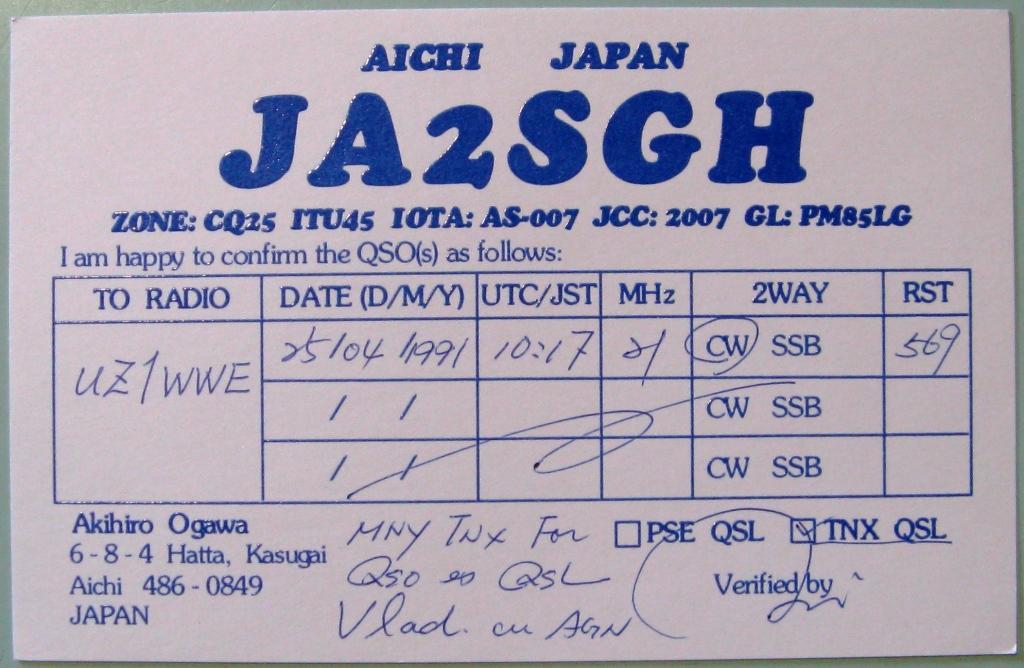 AICHI JAPAN
JA2SGH
ZONE: CQ25 ITU45 IOTA: AS-007 JCC: 2007 GL: PM85LG
I am happy to confirm the QSO(s) as follows:
TO RADIO DATE (D/M/Y) UTC/JST MHz 2WAY RST
UZ1WWE 25/04/1991 10:17 21 CW SSB 569
/ / CW SSB
/ / CW SSB
Akihiro Ogawa
6-8-4 Hatta, Kasugai
Aichi 486-0849
JAPAN
MNY TNX For
QSO es QSL
Vlad. cu AGN
PSE QSL TNX QSL
Verified by